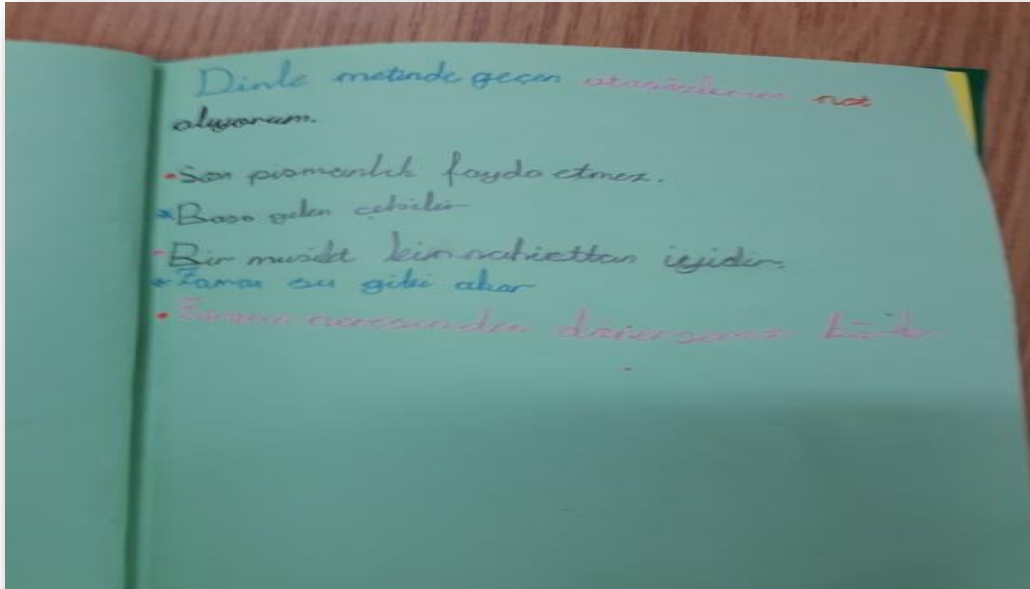 Dinle metinde geçen atasözlerini not
alıyorum.
Son pismanlık fayda etmez.
Başa gelen çekilir
Bir musibt bin nahiettan iyidir.
Zaman su gibi akar
Zararın neresinden dönersenız kârdır